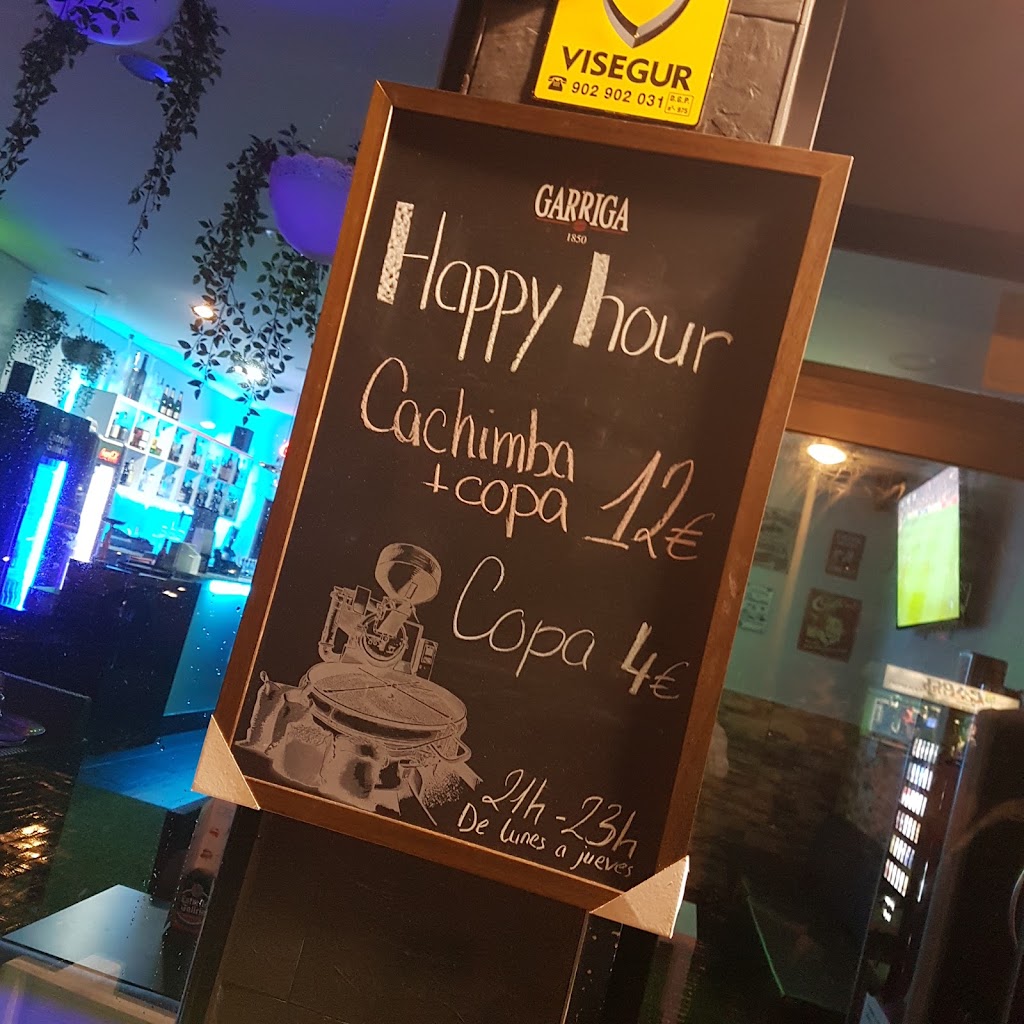 VISEGUR
☎ 902 902 031
D.G.P.
nº 975
GARRIGA
1850
Happy hour
Cachimba
+copa 12€
Copa 4€
21h - 23h
De lunes a jueves